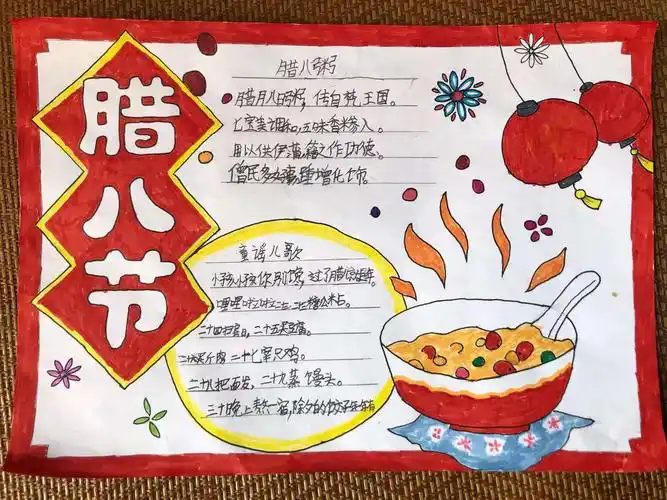 腊八节
腊八粥
腊月八日粥,传自梵王国。
七宝美调和,五味香糁入。
用以供伊蒲,藉之作功德。
僧民多
童谣儿歌
小孩小孩你别馋,过了腊八就是年
哩哩啦啦二十三,二十三糖瓜粘。
二十四扫房日,二十五买豆腐。
二十六买斤肉 二十七宰只鸡。
二十八把面发,二十九蒸馒头。
三十晚上熬一宿,除夕的饺子年年有